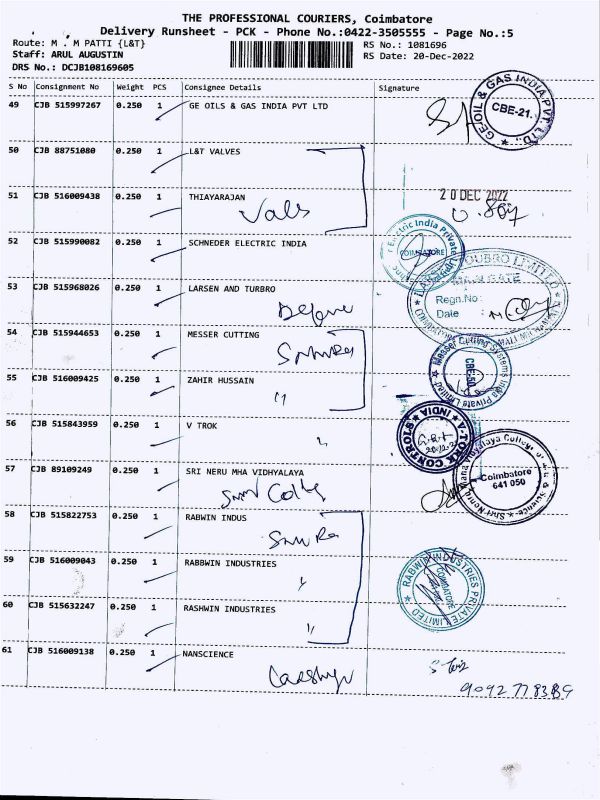 THE PROFESSIONAL COURIERS, Coimbatore
Delivery Runsheet - PCK - Phone No.:0422-3505555 - Page No.:5
Route: M . M PATTI {L&T}
RS No.: 1081696
Staff: ARUL AUGUSTIN
RS Date: 20-Dec-2022
DRS No.: DCJB108169605
S No Consignment No Weight PCS Consignee Details Signature
49 CJB 515997267 0.250 1 GE OILS & GAS INDIA PVT LTD
GE OIL & GAS INDIA PVT. LTD.
CBE-21.
50 CJB 88751080 0.250 1 L&T VALVES
51 CJB 516009438 0.250 1 THIAYARAJAN
20 DEC 2022
Vals
52 CJB 515990082 0.250 1 SCHNEDER ELECTRIC INDIA
Electric India Private
COIMBATORE
53 CJB 515968026 0.250 1 LARSEN AND TURBRO
TOUBRO LIMITED
MAIN GATE
Regn.No:
Date :
54 CJB 515944653 0.250 1 MESSER CUTTING
Messer Cutting Systems India Private Limited
CBE-50.
55 CJB 516009425 0.250 1 ZAHIR HUSSAIN
56 CJB 515843959 0.250 1 V TROK
V-TORK CONTROLS INDIA
57 CJB 89109249 0.250 1 SRI NERU MHA VIDHYALAYA
Coimbatore
641 050
58 CJB 515822753 0.250 1 RABWIN INDUS
59 CJB 516009043 0.250 1 RABBWIN INDUSTRIES
RABWIN INDUSTRIES PRIVATE LIMITED
COIMBATORE
60 CJB 515632247 0.250 1 RASHWIN INDUSTRIES
61 CJB 516009138 0.250 1 NANSCIENCE